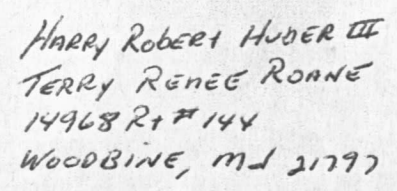 Harry Robert Huber III
Terry Renee Roane
14968 Rt # 144
Woodbine, Md 21797